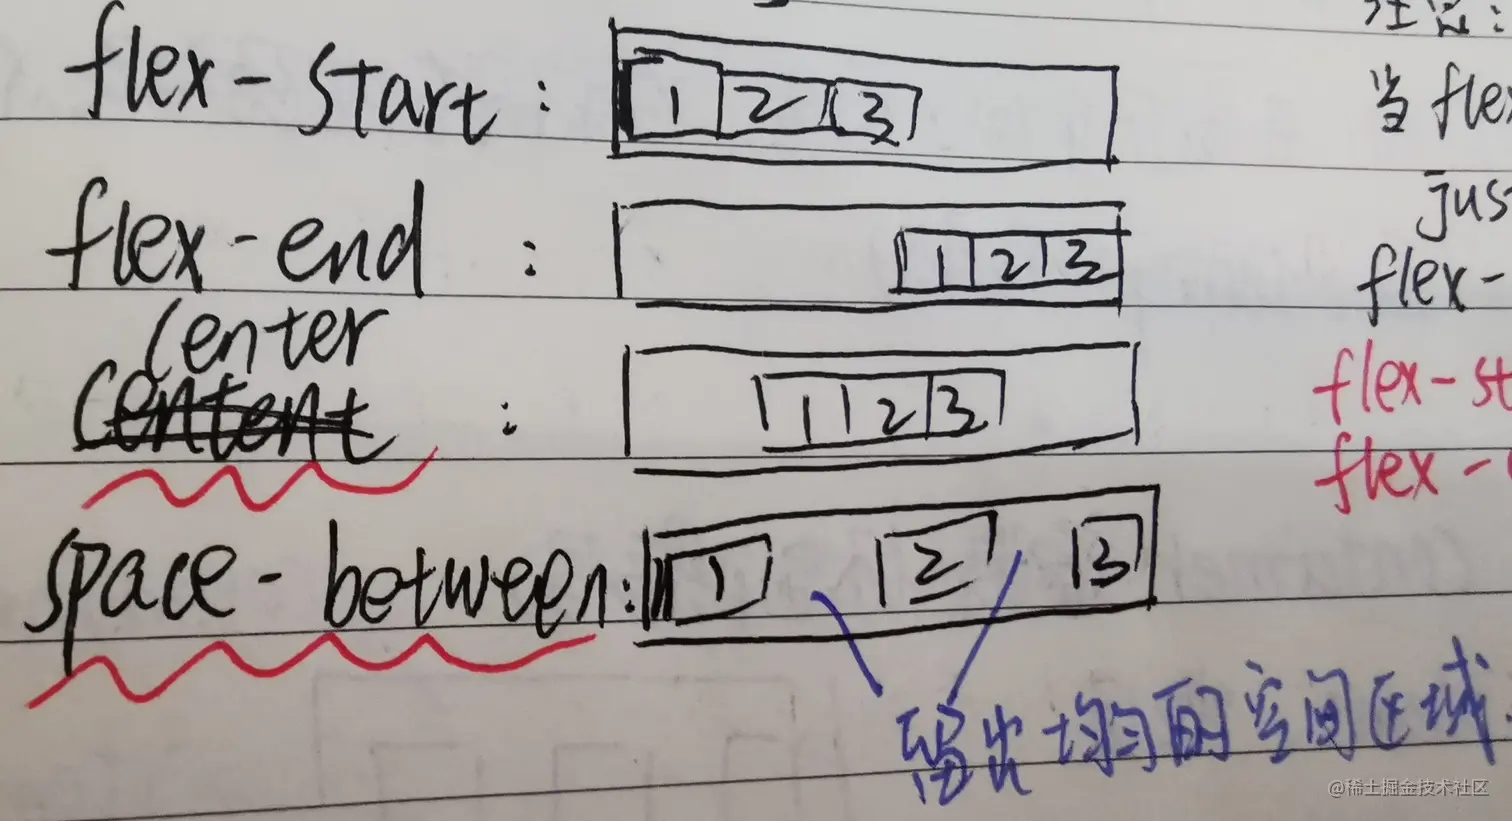 flex-start: 1 2 3
flex-end : 1 2 3
center
content : 1 2 3
space-between: 1 2 3
留出均匀的空间区域.
注意:
当flex
jus
flex-
flex-st
flex-
@稀土掘金技术社区